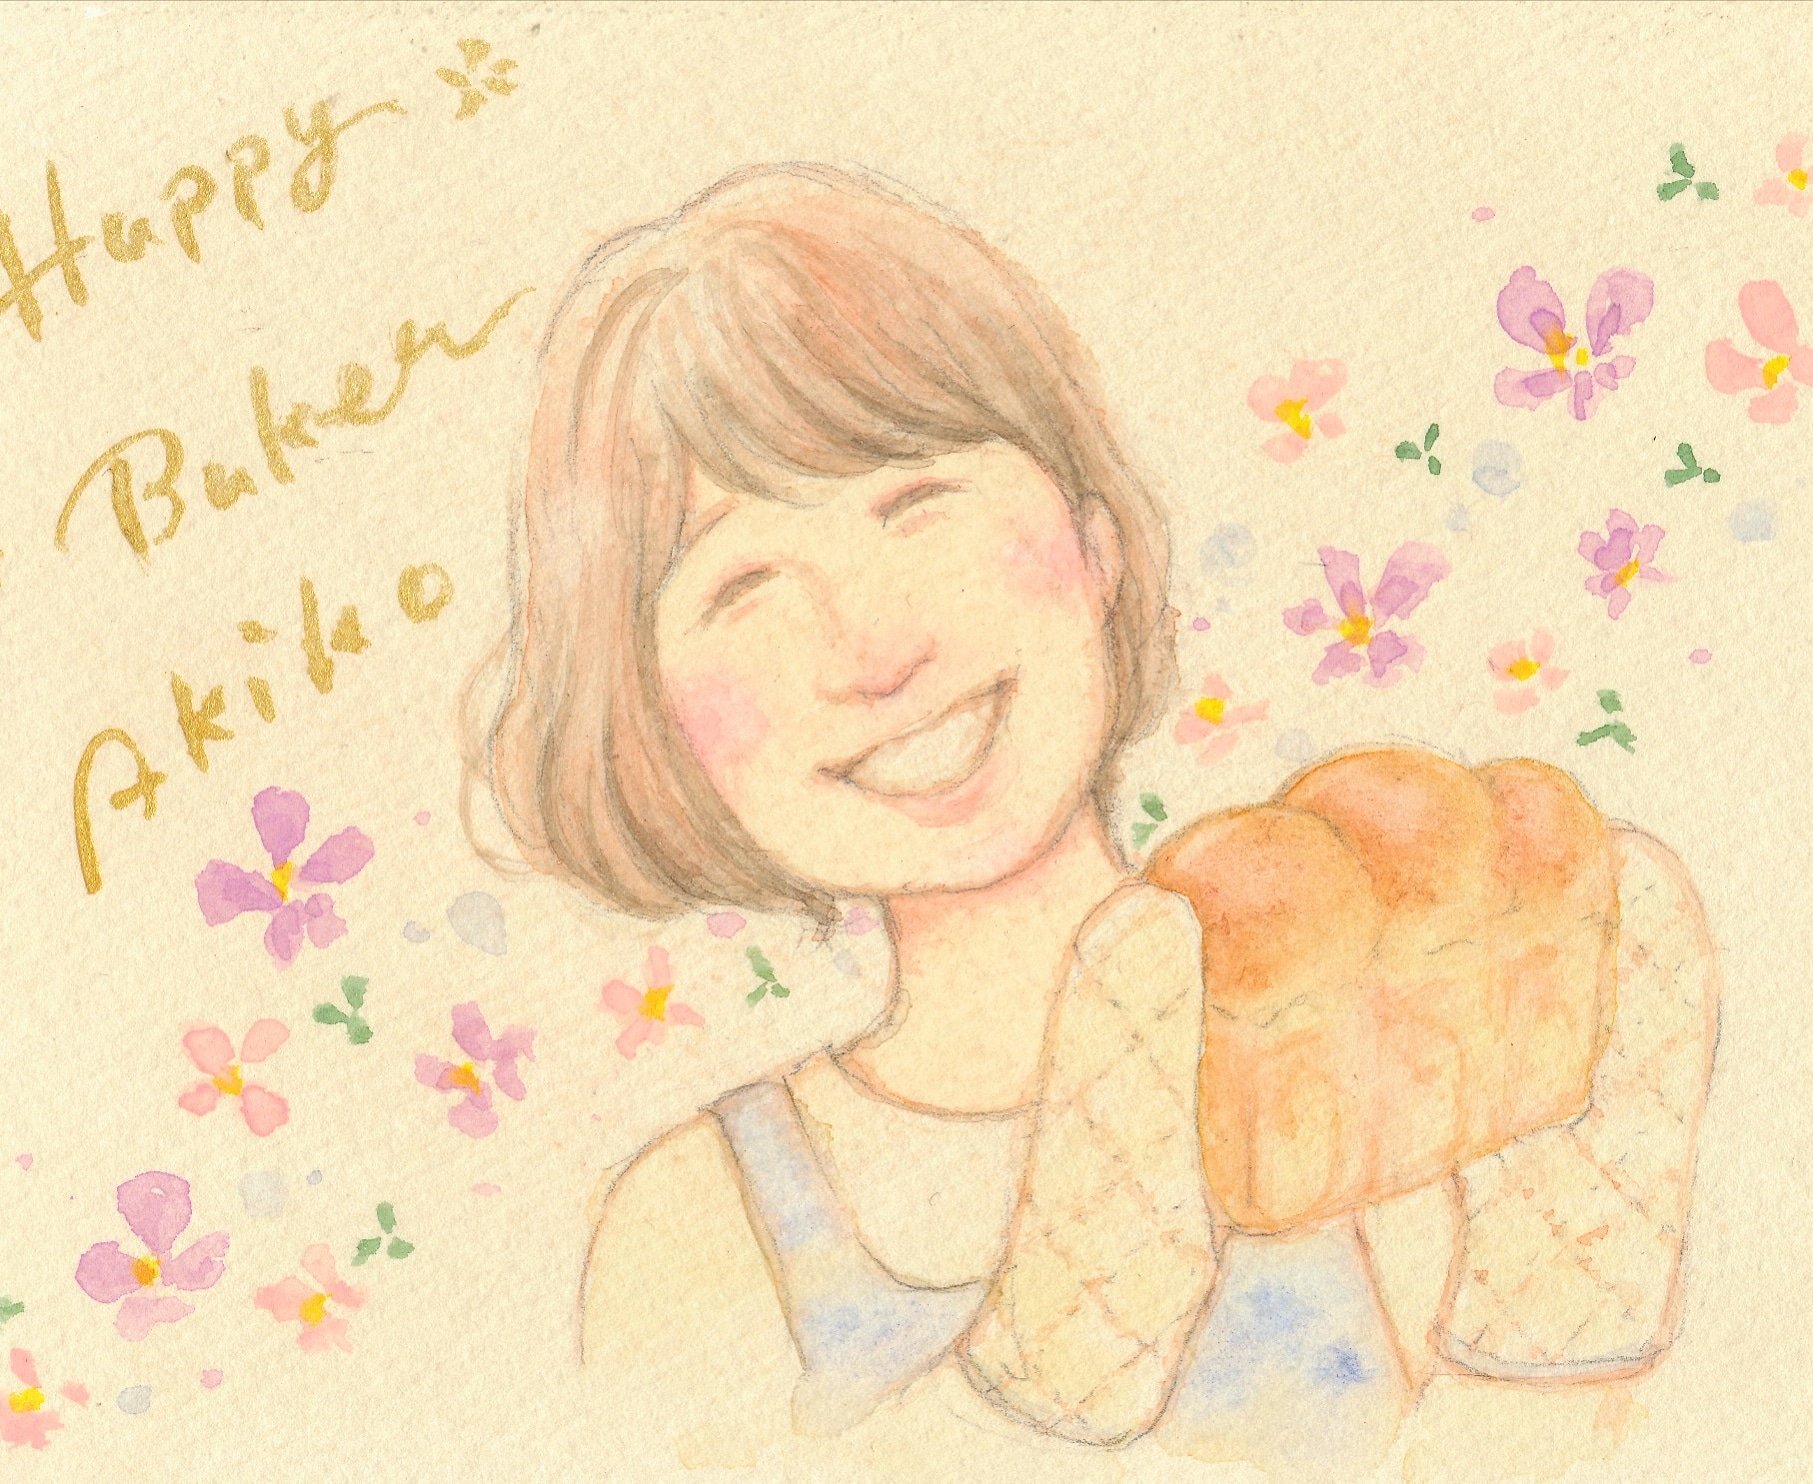 Happy
Baker
Akiko